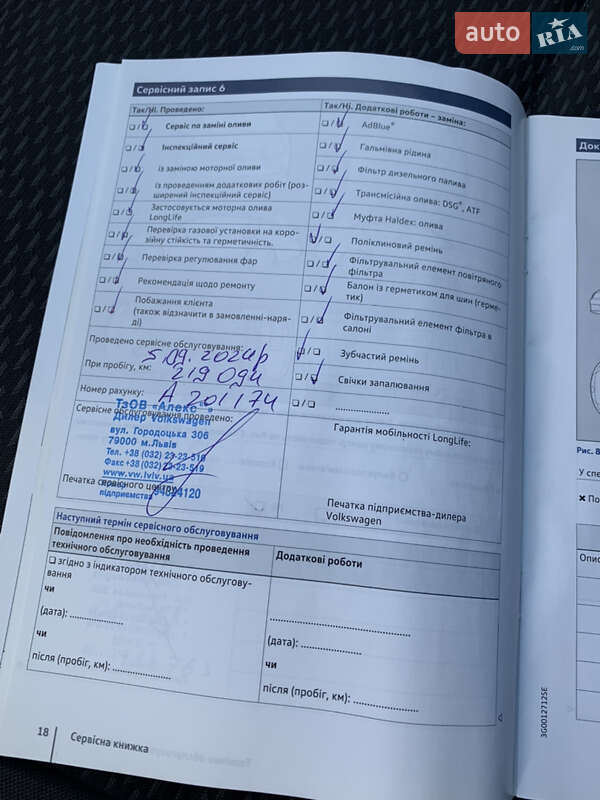 auto RIA
.com
Сервісний запис 6
Так/Ні. Проведено:
❏ / ❏ Сервіс по заміні оливи
❏ / ❏ Інспекційний сервіс
❏ / ❏ із заміною моторної оливи
❏ / ❏ із проведенням додаткових робіт (роз-
ширений інспекційний сервіс)
❏ / ❏ Застосовується моторна олива
LongLife
❏ / ❏ Перевірка газової установки на коро-
зійну стійкість та герметичність.
❏ / ❏ Перевірка регулювання фар
❏ / ❏ Рекомендація щодо ремонту
❏ / ❏ Побажання клієнта
(також відзначити в замовленні-наря-
ді)
Проведено сервісне обслуговування:
5.09.2024р
При пробігу, км: 219 094
Номер рахунку: А 201174
Сервісне обслуговування проведено:
ТзОВ «Алекс
Дилер Volkswagen
вул. Городоцька 306
79000 м.Львів
Тел. +38 (032) 23-23-519
Факс +38 (032) 23-23-519
www.vw.lviv.ua
підприємства
Печатка сервісного центру
Так/Ні. Додаткові роботи – заміна:
❏ / ❏ AdBlue®
❏ / ❏ Гальмівна рідина
❏ / ❏ Фільтр дизельного палива
❏ / ❏ Трансмісійна олива: DSG®, ATF
❏ / ❏ Муфта Haldex: олива
❏ / ❏ Поліклиновий ремінь
❏ / ❏ Фільтрувальний елемент повітряного
фільтра
❏ / ❏ Балон із герметиком для шин (герме-
тик)
❏ / ❏ Фільтрувальний елемент фільтра в
салоні
❏ / ❏ Зубчастий ремінь
❏ / ❏ Свічки запалювання
❏ / ❏ ....................
Гарантія мобільності LongLife:
Печатка підприємства-дилера
Volkswagen
Наступний термін сервісного обслуговування
Повідомлення про необхідність проведення
технічного обслуговування
❏ згідно з індикатором технічного обслугову-
вання
чи
(дата): ....................
чи
після (пробіг, км): ....................
Додаткові роботи
..................................................
(дата): ..............................
чи
після (пробіг, км): ..............................
18 Сервісна книжка
3G0012712SE
Док
Рис. 8
У спе
✖ По
Опис